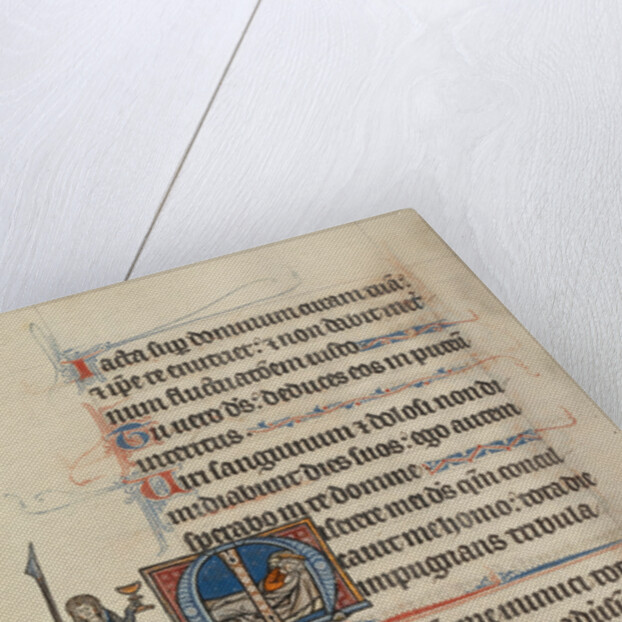 Iacta sup dominum curam tuā:
⁊ ip̄e te enutriet: ⁊ non dabit inet̄
num fluctuatōem iusto
Tu uero ds̄: deduces eos in puteū
interitus.
Uiri sanguinum ⁊ dolosi non di
mediabunt dies suos: ego autem
sperabo in te domine
serere mei ds̄ qm̄ concul
cauit me homo: tota die
impugnans tribula
me inimici